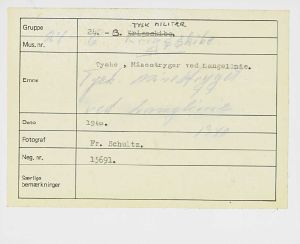 TYSK MILITÆR
Gruppe 24. - B. Krigsskibe.
Mus.nr. 24 Krigsskibe
Tyske, Minestryger ved Langelinie.
Emne Tysk minestryger
ved Langelinie
Dato 1940. 1940
Fotograf Fr. Schultz.
Neg. nr. 15691.
Særlige
bemærkninger